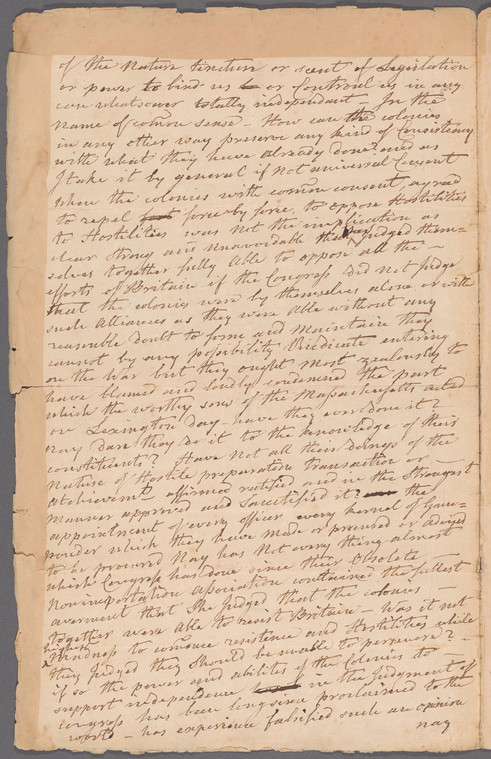 of the Nature tincture or scent of Legislation
or power to bind us to or Controul us in any
case whatsoever totally independant – In the
Name of common sense – How can the colonies
in any other way preserve any kind of Consistency
with what they have already done? and as
I take it by general if not universal Consent
when the colonies with common consent, agreed
to repel force by force, to oppose Hostilities
to Hostilities was not the implication as
clear strong and unavoidable that they Judged them=
selves together fully Able to oppose all the –
efforts of Britain if the Congress did not Judge
that the colonies were by themselves alone or with
such Alliances as they were Able without any
reasonable doubt to form and Maintain they
cannot by any possibility Vindicate entering
on the War but they ought most zealously to
have blamed and loudly condemned the part
which the worthy sons of the Massachusetts acted
on Lexington Day – have they ever done it?
nay dare they do it to the knowledge of their
constituents? Have Not all their doings of the
Nature of Hostile preparation transaction or –
atchievemt affirmed ratified and in the Strongest
Manner approved and Sanctified it? the
appointment of every officer every kernel of Gunn=
powder which they have made or procured or advised
to be procured Nay has Not every thing almost
which Congress has done since their Obsolete
Nonimportation Association contained the fullest
averment that She Judged that the colonies –
together were Able to resist Britain – Was it not
Madness to commence resistence and Hostilities while
they Judged they Should be unable to persevere? –
if so the power and abilites of the Colonies to –
support independence in the Judgment of
Congress has been long since proclaimed to the
world – has experience falsified such an opinion
nay